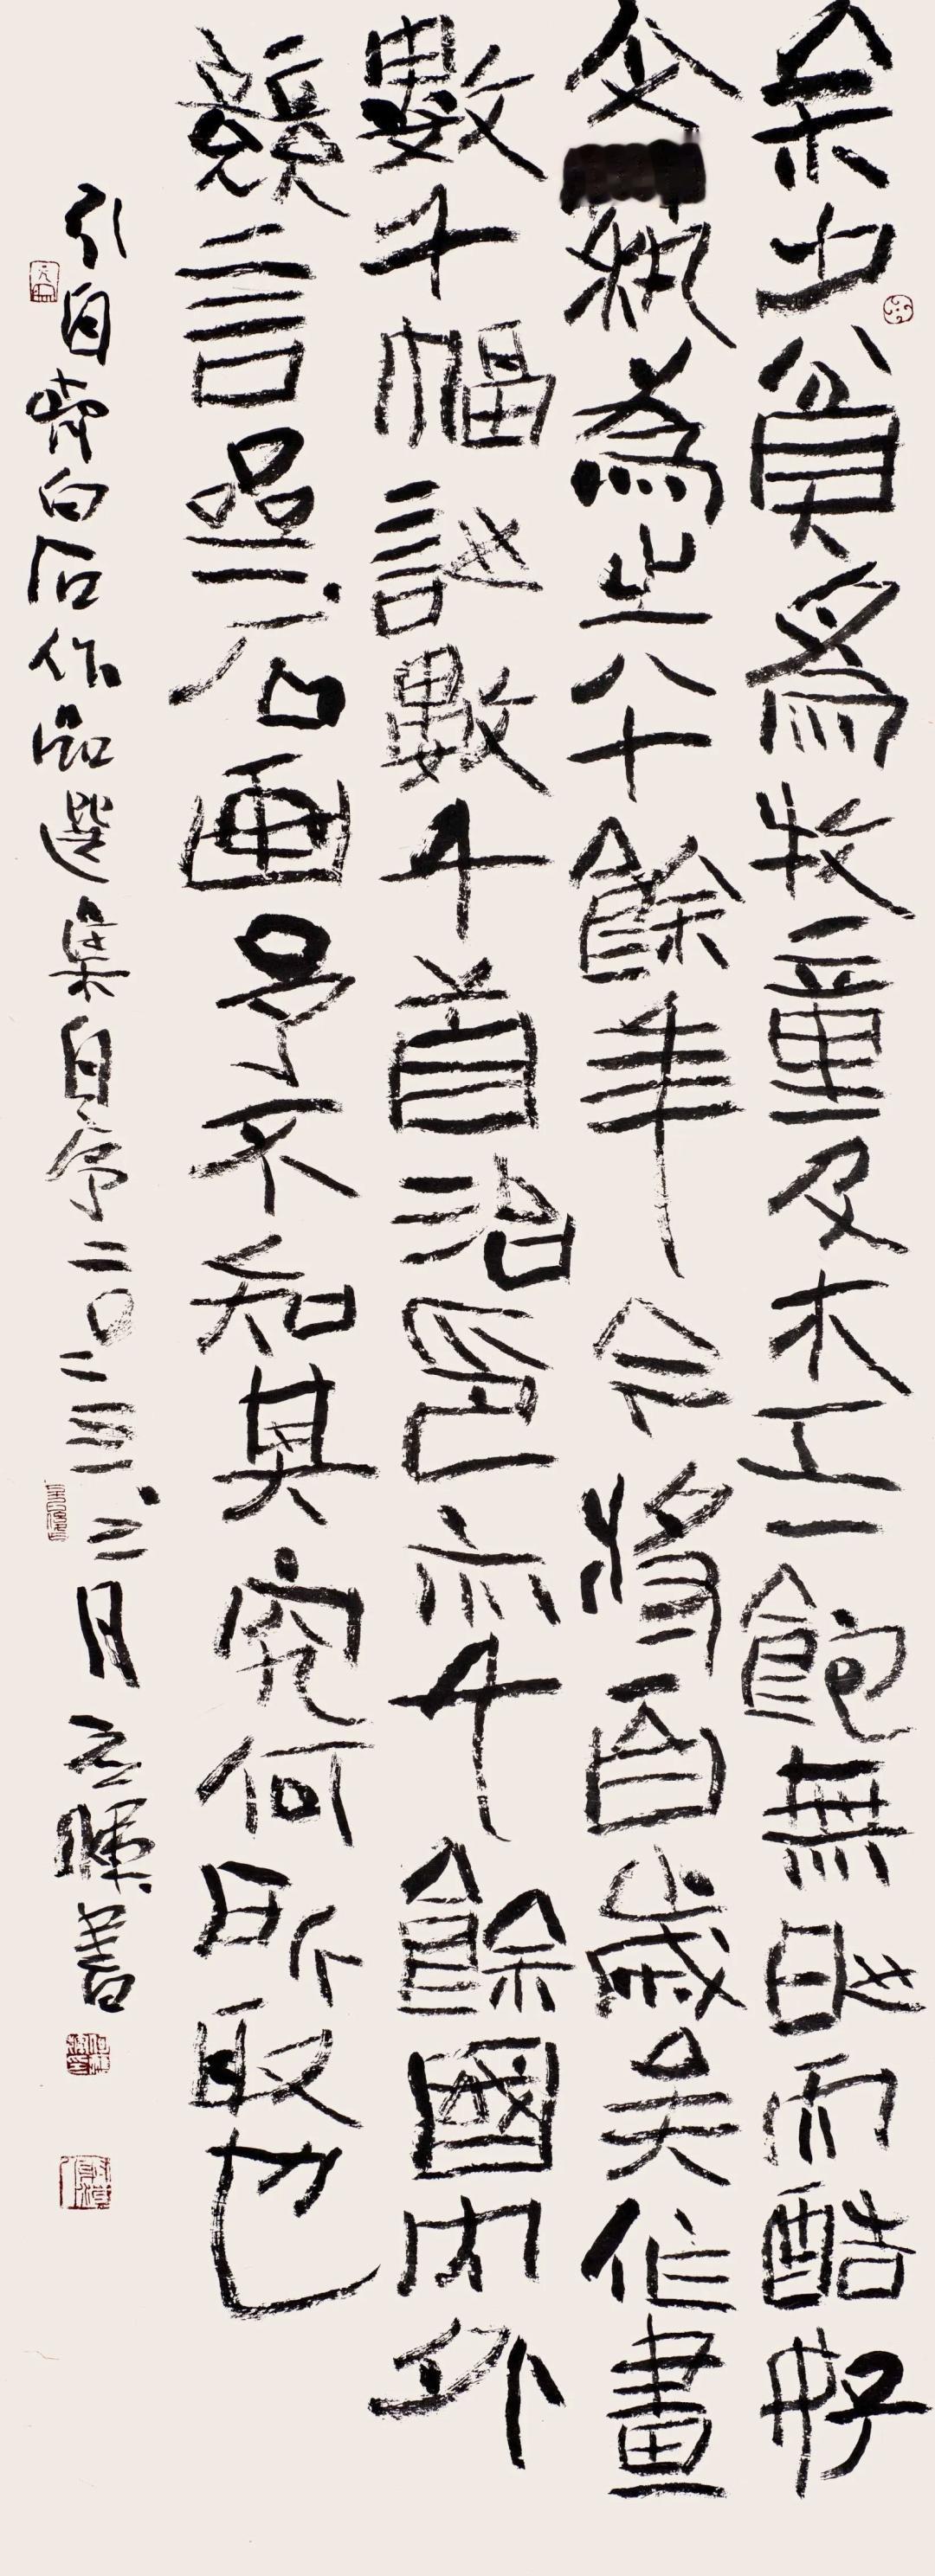 余少貧爲牧童及木工一飽無時而酷好
文為之八十餘年今將百歲矣作畫
數千幅詩數千首治印亦千餘國內外
競言齊石画予不知其究何所取也
引自齊白石作品選集自序二〇二三、三月元暉書